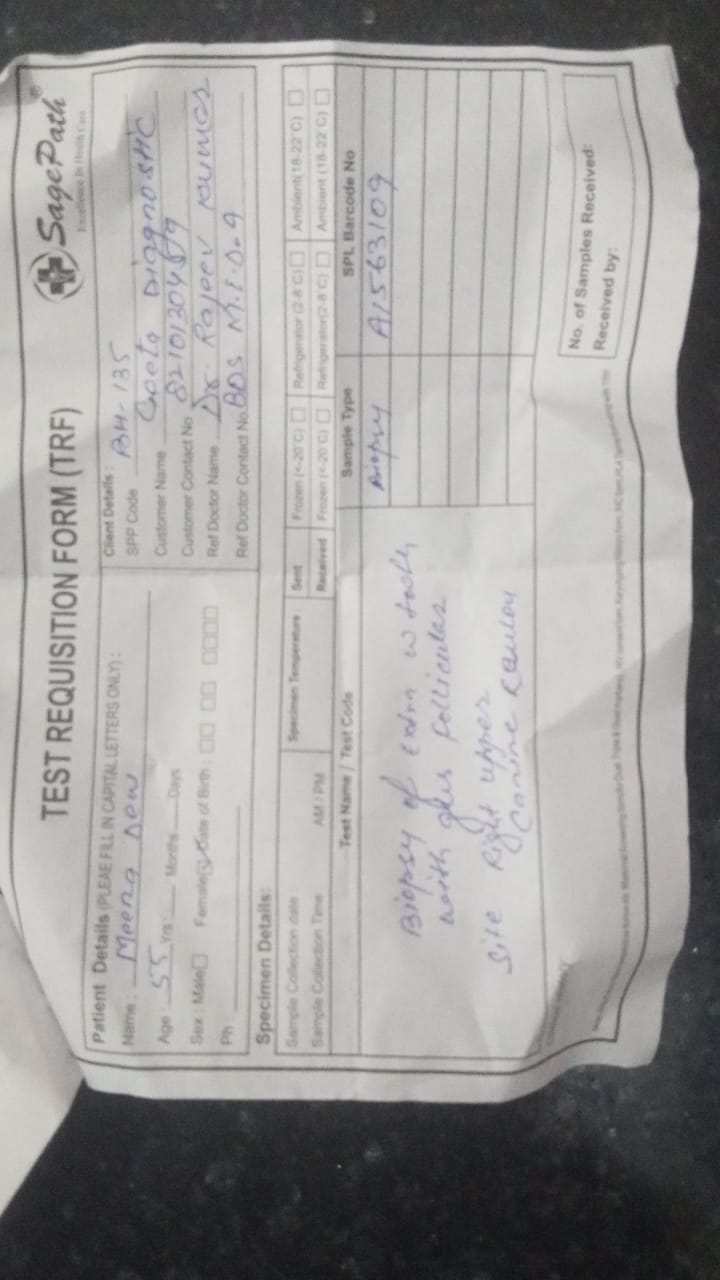 SagePath®
Excellence In Health Care
TEST REQUISITION FORM (TRF)
Patient Details (PLEAE FILL IN CAPITAL LETTERS ONLY) :
Name : Meena Devi
Age : 55 Yrs : Months Days
Sex : Male Female Date of Birth :
Ph :
Client Details :
SPP Code BH-135
Customer Name Geeta Diagnostic
Customer Contact No
Ref Doctor Name Dr Rajeev Kumar
Ref Doctor Contact No. BDS M.I.D.A
Specimen Details:
Sample Collection date
Sample Collection Time AM / PM
Specimen Temperature : Sent Frozen (<-20°C) Refrigerator (2-8°C) Ambient (18-22°C)
Received Frozen (<-20°C) Refrigerator (2-8°C) Ambient (18-22°C)
Test Name / Test Code Sample Type SPL Barcode No
Biopsy A1563109
Biopsy of tooth
with follicular
Site Right upper
canine
No. of Samples Received:
Received by: